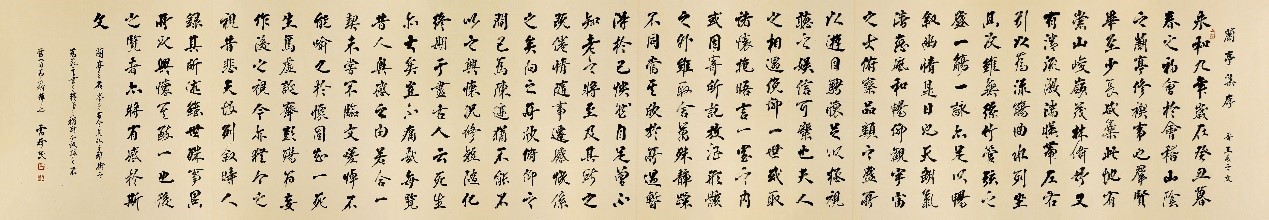 蘭亭集序
永和九年歲在癸丑暮
春之初會於會稽山陰
之蘭亭修禊事也群賢
畢至少長咸集此地有
崇山峻嶺茂林修竹又
有清流激湍映帶左右
引以為流觴曲水列坐
其次雖無絲竹管弦之
盛一觴一詠亦足以暢
敘幽情是日也天朗氣
清惠風和暢仰觀宇宙
之大俯察品類之盛所
以遊目騁懷足以極視
聽之娛信可樂也夫人
之相與俯仰一世或取
諸懷抱晤言一室之內
或因寄所託放浪形骸
之外雖取舍萬殊靜躁
不同當其欣於所遇暫
得於己快然自足曾不
知老之將至及其所之
既倦情隨事遷感慨係
之矣向之所欣俯仰之
間已為陳迹猶不能不
以之興懷況修短隨化
終期于盡古人云死生
亦大矣豈不痛哉每覽
昔人興感之由若合一
契未嘗不臨文嗟悼不
能喻之於懷固知一死
生為虛誕齊彭殤為妄
作後之視今亦猶今之
視昔悲夫故列敘時人
錄其所述雖世殊事異
所以興懷其致一也後
之覽者亦將有感於斯
文